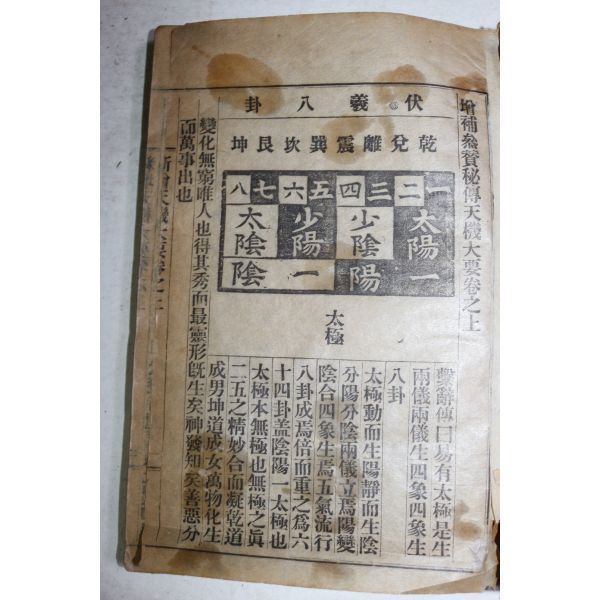 增補參贊秘傳天機大要卷之上
伏羲八卦
乾兌離震巽坎艮坤
一二三四五六七八
太陽 少陰 少陽 太陰
一 陽 一 陰
太極
繫辭傳曰易有太極是生
兩儀兩儀生四象四象生
八卦
太極動而生陽靜而生陰
分陽分陰兩儀立焉陽變
陰合四象生焉五氣流行
八卦成焉倍而重之爲六
十四卦盖陰陽一太極也
太極本無極也無極之眞
二五之精妙合而凝乾道
成男坤道成女萬物化生
變化無窮唯人也得其秀而最靈形旣生矣神發知矣善惡分
而萬事出也
新增天機大要卷之上